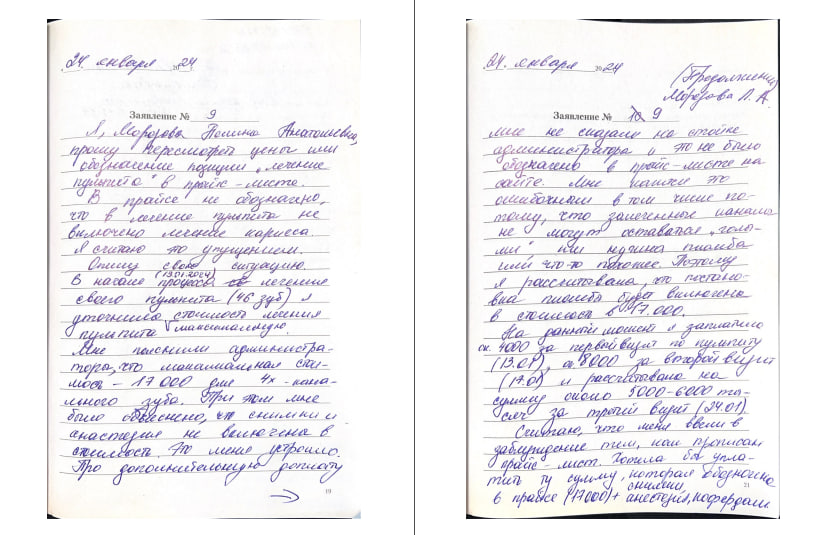 24 января 2024
Заявление № 9
Я, Морозова Полина Анатольевна,
прошу пересмотреть цены или
обозначение позиции „лечение
пульпита" в прайс-листе.
В прайсе не обозначено,
что в лечение пульпита не
включено лечение кариеса.
Я считаю это упущением.
Опишу свою ситуацию.
В начале процесса (13.01.2024) лечения
своего пульпита (46 зуб) я
уточнила стоимость лечения
пульпита максимальную.
Мне пояснили администра-
тора, что максимальная стои-
мость - 17 000 для 4х-кана-
льного зуба. При этом мне
было объяснено, что снимки и
анастезия не включена в
стоимость. Это меня устроило.
Про дополнительную доплату
19
24. января 2024
(Продолжение)
Морозова П. А.
Заявление № 10 9
мне не сказали на стойке
администратора и это не было
обозначено в прайс-листе на
сайте. Мне кажется это
ошибочным в том числе по-
тому, что залеченные каналы
не могут оставаться „голы-
ми" или нужна пломба
или что-то похожее. Поэтому
я рассчитывала, что постано-
вка пломбы будет включена
в стоимость в 17.000.
На данный момент я заплатила
ок. 4000 за первый визит по пульпиту
(13.01), ок 8000 за второй визит
(17.01) и рассчитывала на
сумму около 5000-6000 ты-
сяч за третий визит (24.01).
Считаю, что меня ввели в
заблуждение тем, как прописан
прайс-лист. Хотела бы упла-
тить ту сумму, которая обозначена
в прайсе (17000) + снимки, анестезия, коффердам
21